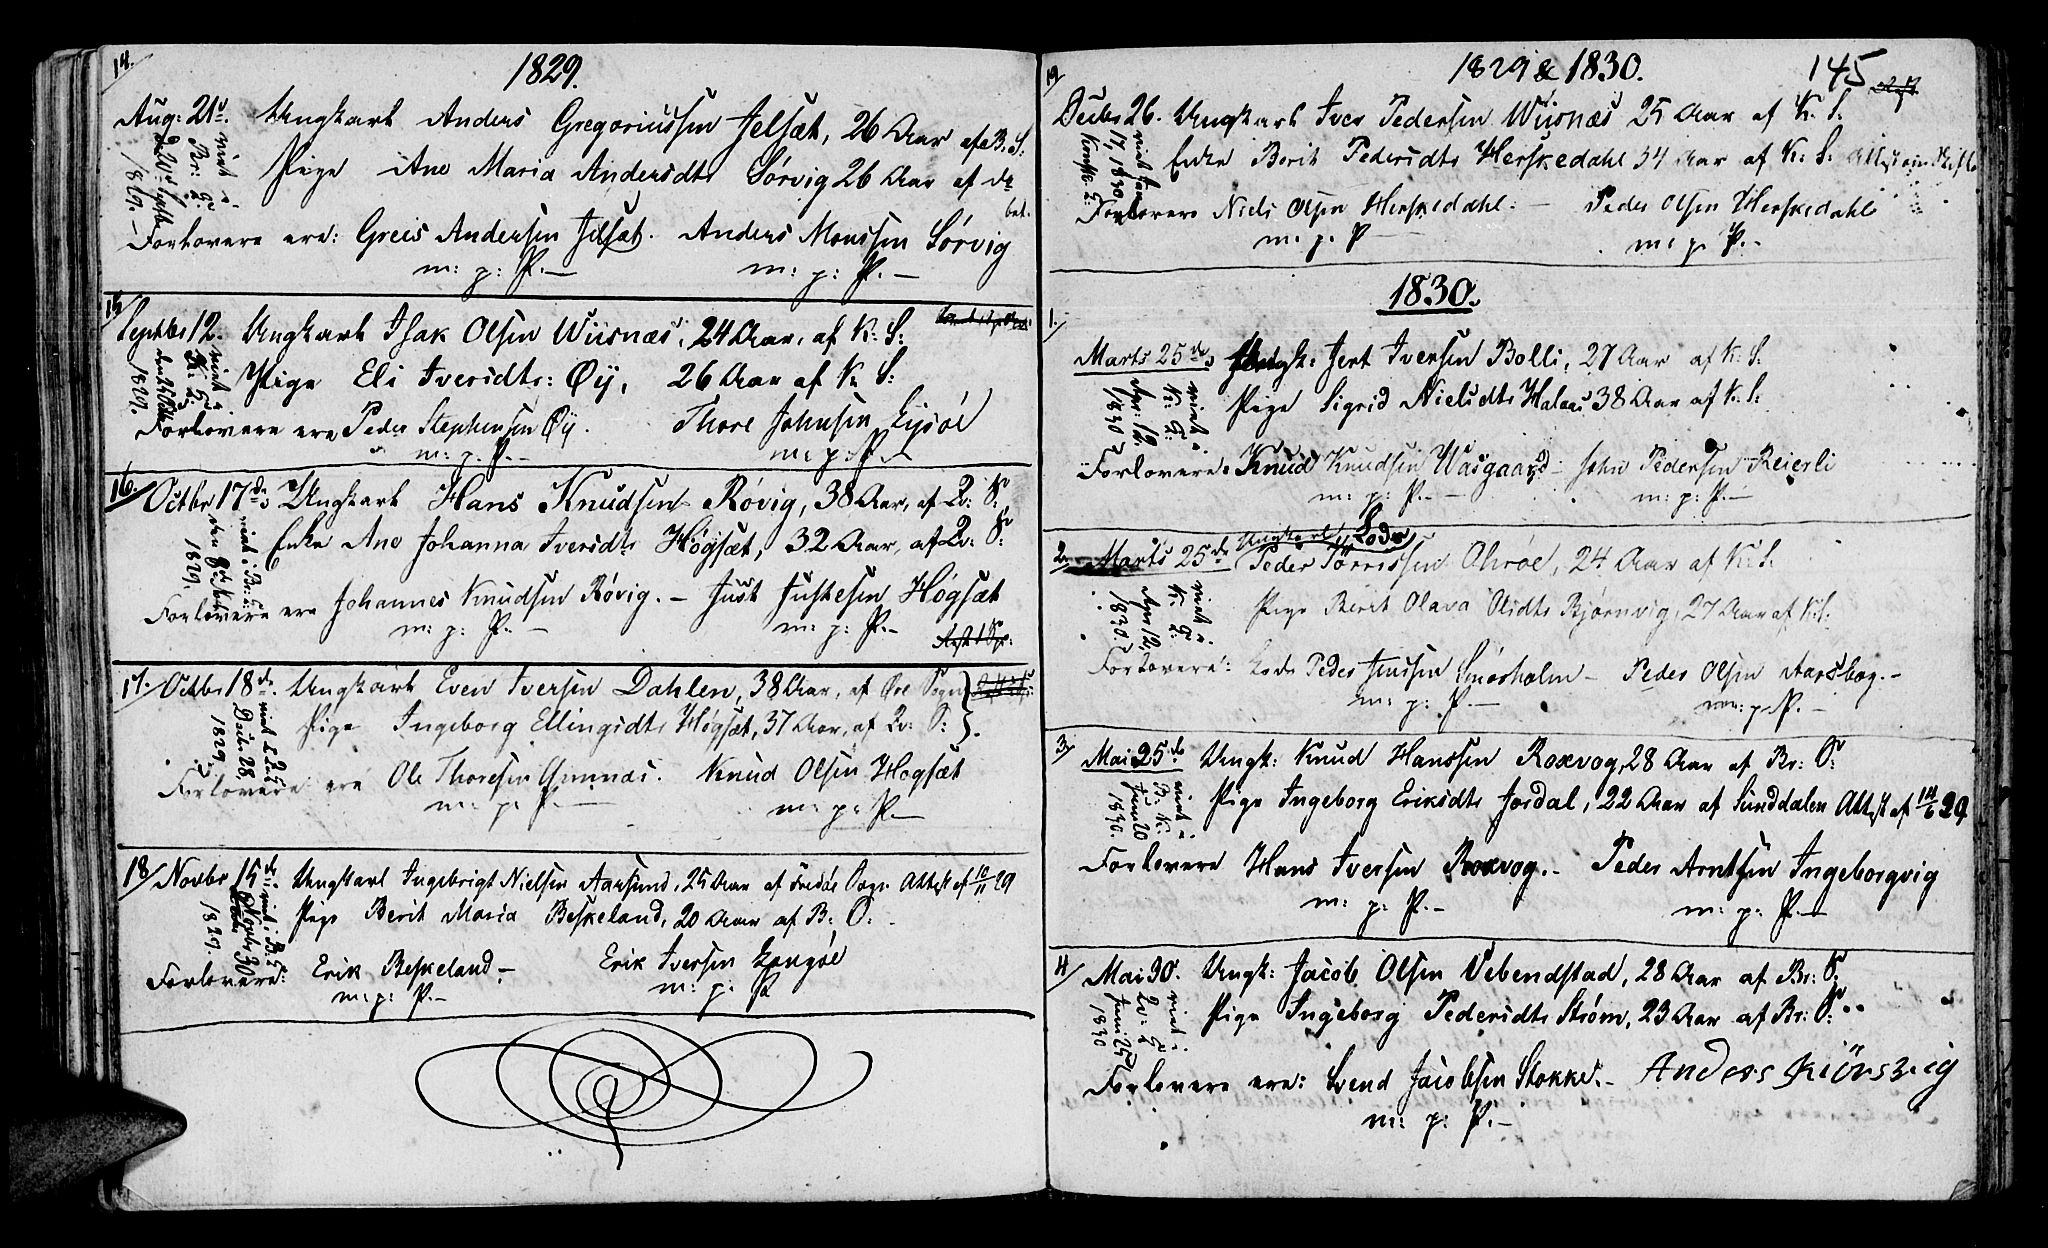 14.
1829.
Aug: 21. Ungkarl Anders Gregoriussen Jelsæt, 26 Aar af B. S:
Pige Ane Maria Andersdtr Sørvig 26 Aar af
viet i Br: 1829.
Forlovere ere: Greis Andersen Jelsæt. Anders Monssen Sørvig
m: p: P.— m: p: P.—
15
Septbr 12. Ungkarl Isak Olsen Wiisnæs, 24 Aar, af K: S:
Pige Eli Iversdtr: Øy, 26 Aar af K: S:
viet i K: 1829.
Forlovere ere Peder Stephensen Øy. Thore Johnsen Eysøe
m: p: P.— m: p: P.—
16.
Octbr 17de Ungkarl Hans Knudsen Røvig, 38 Aar, af Qv: S:
Enke Ane Johanna Iversdtr Høgsæt, 32 Aar, af Qv: S:
viet i Br: 1829.
Forlovere ere Johannes Knudsen Røvig.— Just Justesen Høgsæt
m: p: P.— m: p: P.—
17. Octbr 18de. Ungkarl Even Iversen Dahlen, 38 Aar, af Øre Sogn
Pige Ingeborg Ellingsdtr Høgsæt, 37 Aar, af Qv: S:
viet Decbr 28, 1829
Forlovere ere Ole Thoresen Gimnæs. Knud Olsen Høgsæt
m: p: P.— m: p: P.—
18/ Novbr 15de Ungkarl Ingebrigt Nielsen Aarsund, 25 Aar af Fredøe Sogn Attest af 10/11 29
Pige Berit Maria Beskeland, 20 Aar af B: S:
viet i B: Novbr 30 1829.
Forlovere: Erik Beskeland,— Erik Iversen Langøe
m: p: P.— m: p: P
1829 & 1830.
145
19
Decbr 26. Ungkarl Iver Pedersen Wiisnæs 25 Aar af K: S:
Enke Berit Pedersdtr Herskedahl 34 Aar af K: S:
17, 1830
Forlovere Niels Olsen Herskedahl:— Peder Olsen Herskedahl
m: p: P— m: p: P.—
1830.
1.
Marts 25de Ungk: Jert Iversen Bolli, 27 Aar af K: S:
Pige Sigrid Nielsdtr Halaas 38 Aar af K: S:
viet i K: Apr: 12. 1830
Forlovere: Knud Knudsen Wasgaard— John Pedersen Reierli
m: p: P.— m: p: P.—
2. Marts 25de Ungkarl Lods Peder Tørrissen Ohrøe, 24 Aar af K: S:
Pige Berit Olava Olsdtr Bjørnvig, 27 Aar af K: S:
viet i K: Apr 12, 1830.
Forlovere: Lods Peder Jenssen Smørholm— Peder Olsen Aarsbog.—
m: p: P.— m: p. P.—
3/
Mai 25de Ungk: Knud Hanssen Roxvog, 28 Aar af Br: S:
Pige Ingeborg Eriksdtr Jordal, 22 Aar af Sunddalen Attest af
viet i B: K: Juni 20 1830.
Forlovere Hans Iversen Roxvog.— Peder Arntsen Ingeborgvig
m: p: P.— m: p: P.—
4/
Mai 30. Ungk: Jacob Olsen Vebendstad, 28 Aar af Br: S:
Pige Ingeborg Pedersdtr Strøm, 23 Aar af Br: S:
viet i Qv: Juni 25 1830
Forlovere ere: Svend Jacobsen Stokke.— Anders Kiørsvig
m: p: P.—